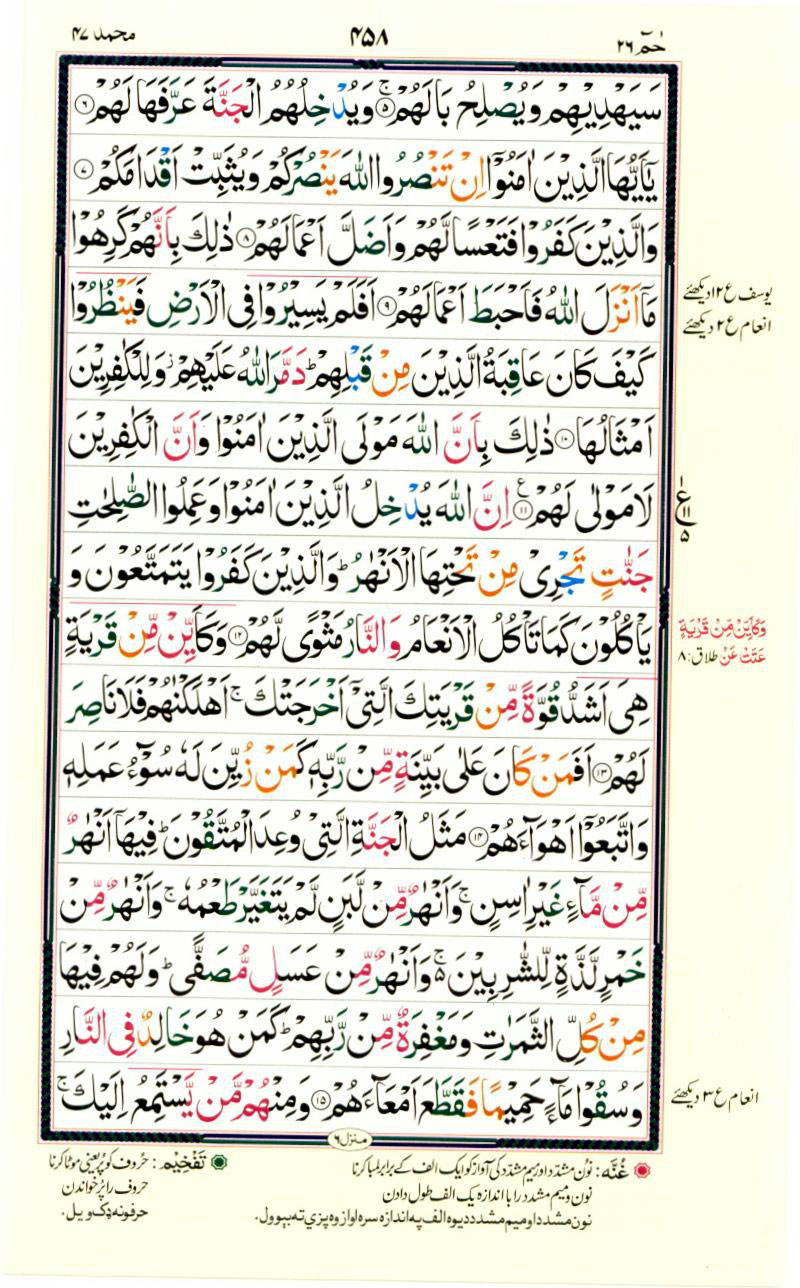 حٰمٓ ٢٦
٤٥٨
محمد ٤٧
سَيَهْدِيْهِمْ وَيُصْلِحُ بَالَهُمْ ۚ‏۝٥ وَيُدْخِلُهُمُ الْجَنَّةَ عَرَّفَهَا لَهُمْ ۝٦
يٰٓاَيُّهَا الَّذِيْنَ اٰمَنُوْٓا اِنْ تَنْصُرُوا اللّٰهَ يَنْصُرْكُمْ وَيُثَبِّتْ اَقْدَامَكُمْ ۝٧
وَالَّذِيْنَ كَفَرُوْا فَتَعْسًا لَّهُمْ وَاَضَلَّ اَعْمَالَهُمْ ۝٨ ذٰلِكَ بِاَنَّهُمْ كَرِهُوْا
مَآ اَنْزَلَ اللّٰهُ فَاَحْبَطَ اَعْمَالَهُمْ ۝٩ اَفَلَمْ يَسِيْرُوْا فِى الْاَرْضِ فَيَنْظُرُوْا
كَيْفَ كَانَ عَاقِبَةُ الَّذِيْنَ مِنْ قَبْلِهِمْ ؕ دَمَّرَ اللّٰهُ عَلَيْهِمْ ۡ وَلِلْكٰفِرِيْنَ
اَمْثَالُهَا ۝١٠ ذٰلِكَ بِاَنَّ اللّٰهَ مَوْلَى الَّذِيْنَ اٰمَنُوْا وَاَنَّ الْكٰفِرِيْنَ
لَا مَوْلٰى لَهُمْ ۝١١ ع اِنَّ اللّٰهَ يُدْخِلُ الَّذِيْنَ اٰمَنُوْا وَعَمِلُوا الصّٰلِحٰتِ
جَنّٰتٍ تَجْرِىْ مِنْ تَحْتِهَا الْاَنْهٰرُ ؕ وَالَّذِيْنَ كَفَرُوْا يَتَمَتَّعُوْنَ وَ
يَاْكُلُوْنَ كَمَا تَاْكُلُ الْاَنْعَامُ وَالنَّارُ مَثْوًى لَّهُمْ ۝١٢ وَكَاَيِّنْ مِّنْ قَرْيَةٍ
هِىَ اَشَدُّ قُوَّةً مِّنْ قَرْيَتِكَ الَّتِىْٓ اَخْرَجَتْكَ ۚ اَهْلَكْنٰهُمْ فَلَا نَاصِرَ
لَهُمْ ۝١٣ اَفَمَنْ كَانَ عَلٰى بَيِّنَةٍ مِّنْ رَّبِّهٖ كَمَنْ زُيِّنَ لَهٗ سُوْٓءُ عَمَلِهٖ
وَاتَّبَعُوْٓا اَهْوَآءَهُمْ ۝١٤ مَثَلُ الْجَنَّةِ الَّتِىْ وُعِدَ الْمُتَّقُوْنَ ؕ فِيْهَآ اَنْهٰرٌ
مِّنْ مَّآءٍ غَيْرِ اٰسِنٍ ۚ وَاَنْهٰرٌ مِّنْ لَّبَنٍ لَّمْ يَتَغَيَّرْ طَعْمُهٗ ۚ وَاَنْهٰرٌ مِّنْ
خَمْرٍ لَّذَّةٍ لِّلشّٰرِبِيْنَ ۚ۬ وَاَنْهٰرٌ مِّنْ عَسَلٍ مُّصَفًّى ؕ وَلَهُمْ فِيْهَا
مِنْ كُلِّ الثَّمَرٰتِ وَمَغْفِرَةٌ مِّنْ رَّبِّهِمْ ؕ كَمَنْ هُوَ خَالِدٌ فِى النَّارِ
وَسُقُوْا مَآءً حَمِيْمًا فَقَطَّعَ اَمْعَآءَهُمْ ۝١٥ وَمِنْهُمْ مَّنْ يَّسْتَمِعُ اِلَيْكَ ۚ
یوسف ع ۱۲ دیکھئے
انعام ع ۲ دیکھئے
ع
١١
٥
وَكَاَيِّنْ مِّنْ قَرْيَةٍ
عَتَتْ عَنْ طلاق: ۸
انعام ع ۳ دیکھئے
منزل ٦
غُنَّه: نون مشدد اور میم مشدد کی آواز کو ایک الف کے برابر لمبا کرنا
نون و میم مشدد را با اندازہ یک الف طول دادن
نون مشدد او میم مشدد دیوہ الف پہ اندازہ سرہ اواز وہ پزې تہ بېوول.
تَفْخِيْم: حروف کو پُر یعنی موٹا کرنا
حروف را پُر خواندن
حرفونہ ډک ویل.